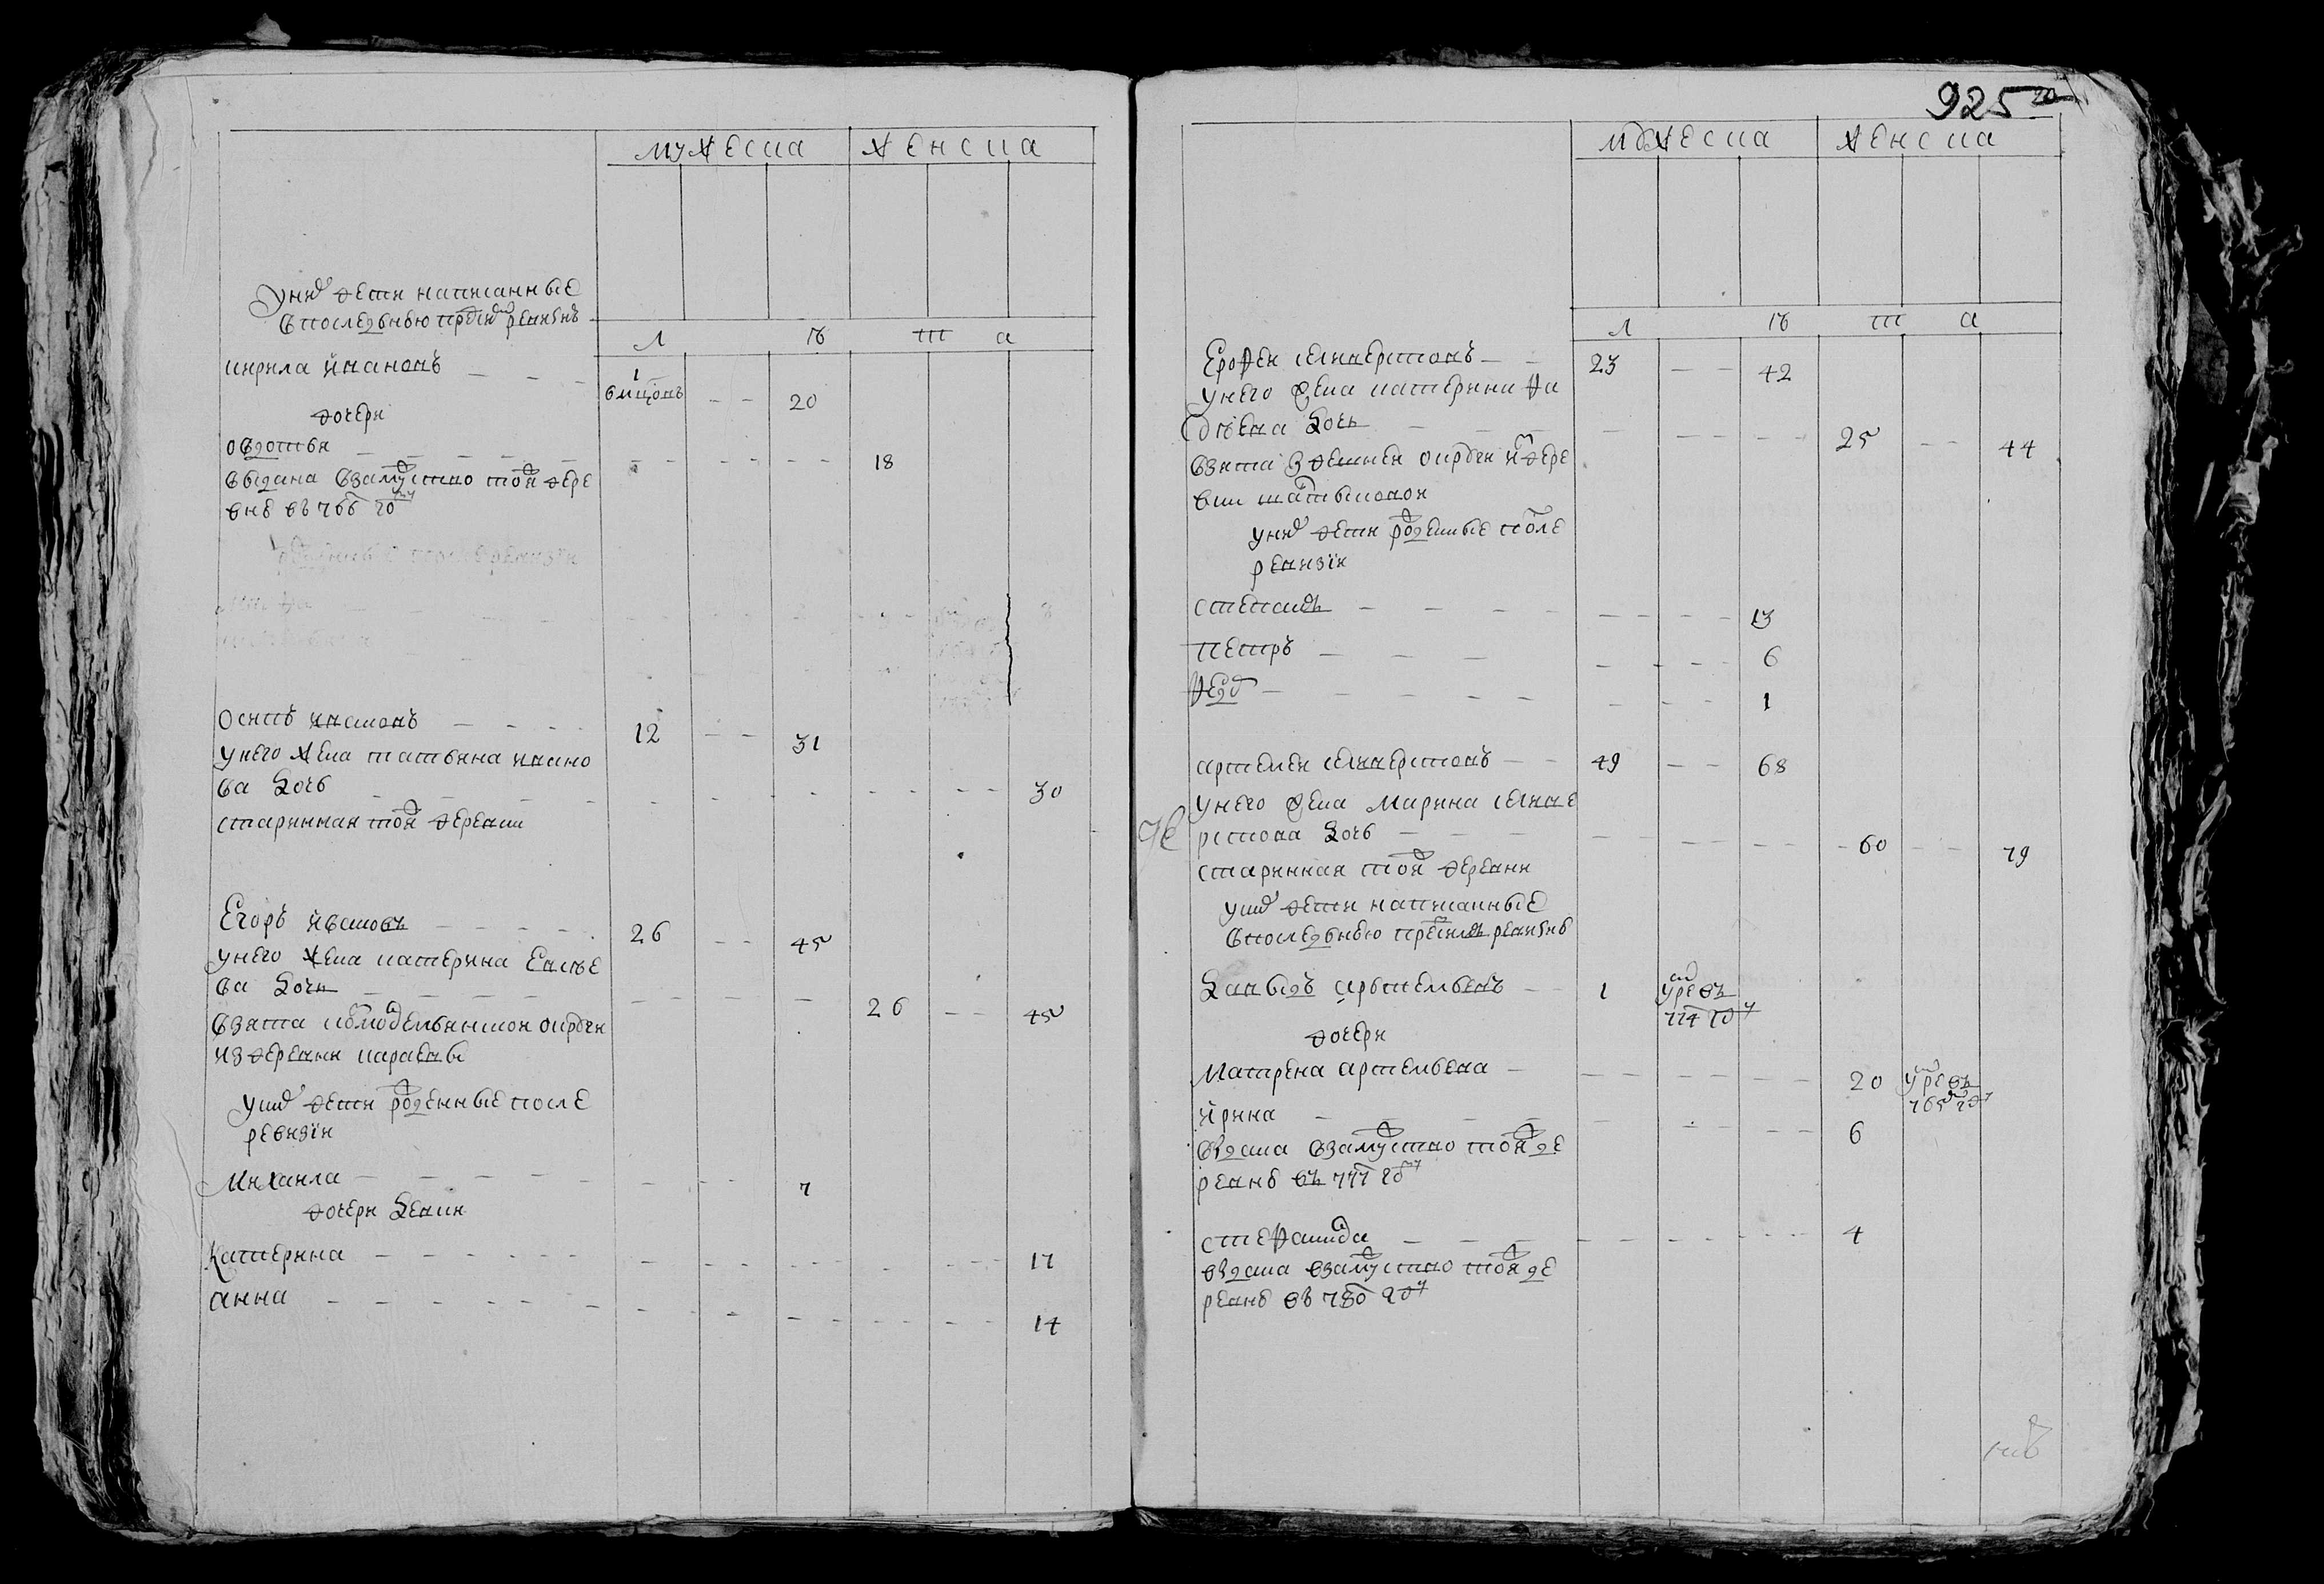 мужеска женска
у них дети написанные
в последънею пред сим ревизию
л ѣ т а
кирила иванов 1 6 мцовъ 20
дочери
овдотья 18
выдана взамужство той дере
вне въ 766 году
рожденные после ревизiи
осипъ ивановъ 12 31
у него жена татьяна ивано
ва дочь 30
старинная той деревни
Егоръ ивановъ 26 45
у него жена катерина Евсѣе
ва дочь 26 45
взята округи
из деревни караевы
у них дети рожденные после
ревизiи
михаила 7
дочери девки
катерина 17
анна 14
925
мужеска женска
л ѣ т а
Ерофеи селиверстовъ 23 42
у него жена катерина фа
дѣева дочь 25 44
взята здешней округи из дере
вни
у них дети рожденные после
ревизiи
степанъ 13
петръ 6
федор 1
артемеи селиверстовъ 49 68
у него жена марина селиве
рстова дочь 60 79
старинная той деревни
у них дети написанные
в последънею пред сим ревизию
давыдъ артемьевъ 1 умре въ
774 году
дочери
матрена артемьева 20 умре въ
765 году
ирина 6
выдана взамужство той де
ревне въ 777 году
стефанида 4
выдана взамужство той де
ревне въ 780 году